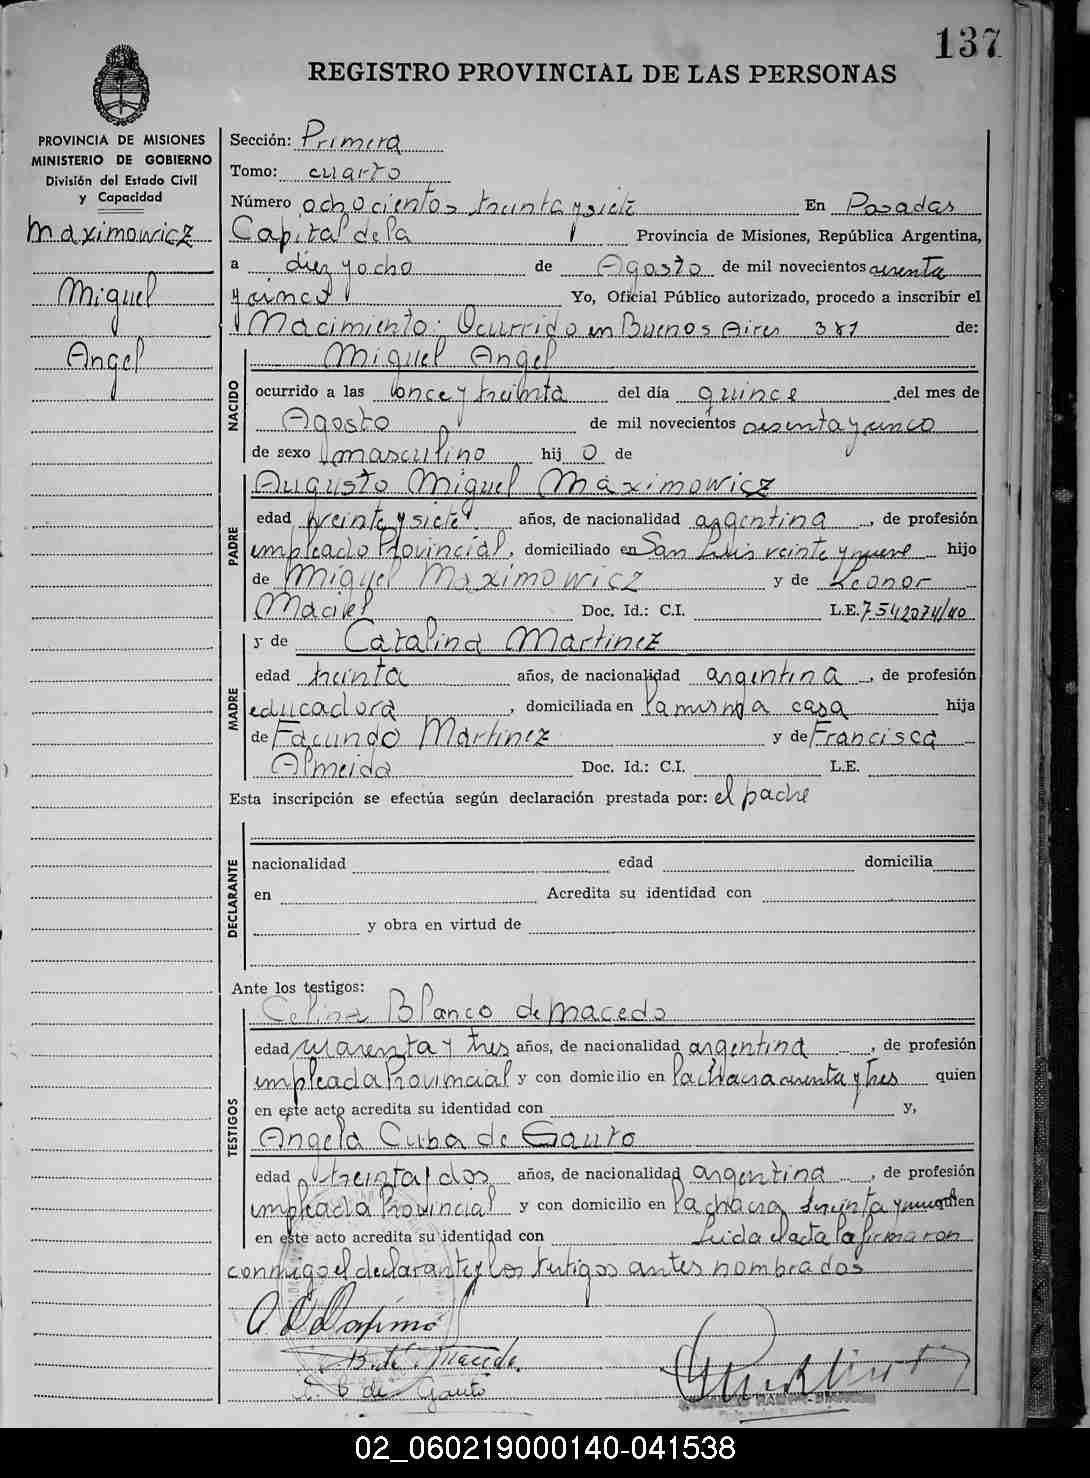 137
REGISTRO PROVINCIAL DE LAS PERSONAS
PROVINCIA DE MISIONES
MINISTERIO DE GOBIERNO
División del Estado Civil
y Capacidad
Maximowicz
Miguel
Angel
Sección: Primera
Tomo: cuarto
Número ochocientos treinta y siete En Posadas
Capital de la Provincia de Misiones, República Argentina,
a diez y ocho de Agosto de mil novecientos sesenta
y cinco Yo, Oficial Público autorizado, procedo a inscribir el
Nacimiento: Ocurrido en Buenos Aires 381 de:
NACIDO
Miguel Angel
ocurrido a las once y treinta del día quince del mes de
Agosto de mil novecientos sesenta y cinco
de sexo masculino hij o de
PADRE
Augusto Miguel Maximowicz
edad veinte y siete años, de nacionalidad argentina, de profesión
empleado Provincial, domiciliado en San Luis veinte y nueve hijo
de Miguel Maximowicz y de Leonor
Maciel Doc. Id.: C.I. L.E. 7542074/40
MADRE
y de Catalina Martinez
edad treinta años, de nacionalidad argentina, de profesión
educadora, domiciliada en la misma casa hija
de Facundo Martinez y de Francisca
Almeida Doc. Id.: C.I. L.E.
Esta inscripción se efectúa según declaración prestada por: el padre
DECLARANTE
nacionalidad edad domicilia
en Acredita su identidad con
y obra en virtud de
Ante los testigos:
TESTIGOS
Celina Blanco de Macedo
edad cuarenta y tres años, de nacionalidad argentina, de profesión
empleada Provincial y con domicilio en la chacra cuarenta y tres quien
en este acto acredita su identidad con y,
Angela Cuba de Gauto
edad treinta y dos años, de nacionalidad argentina, de profesión
empleada Provincial y con domicilio en la chacra treinta y nueve quien
en este acto acredita su identidad con Leida el acta la firmaron
conmigo el declarante y los testigos antes nombrados
B. de Macedo
C de Gauto
02_060219000140-041538